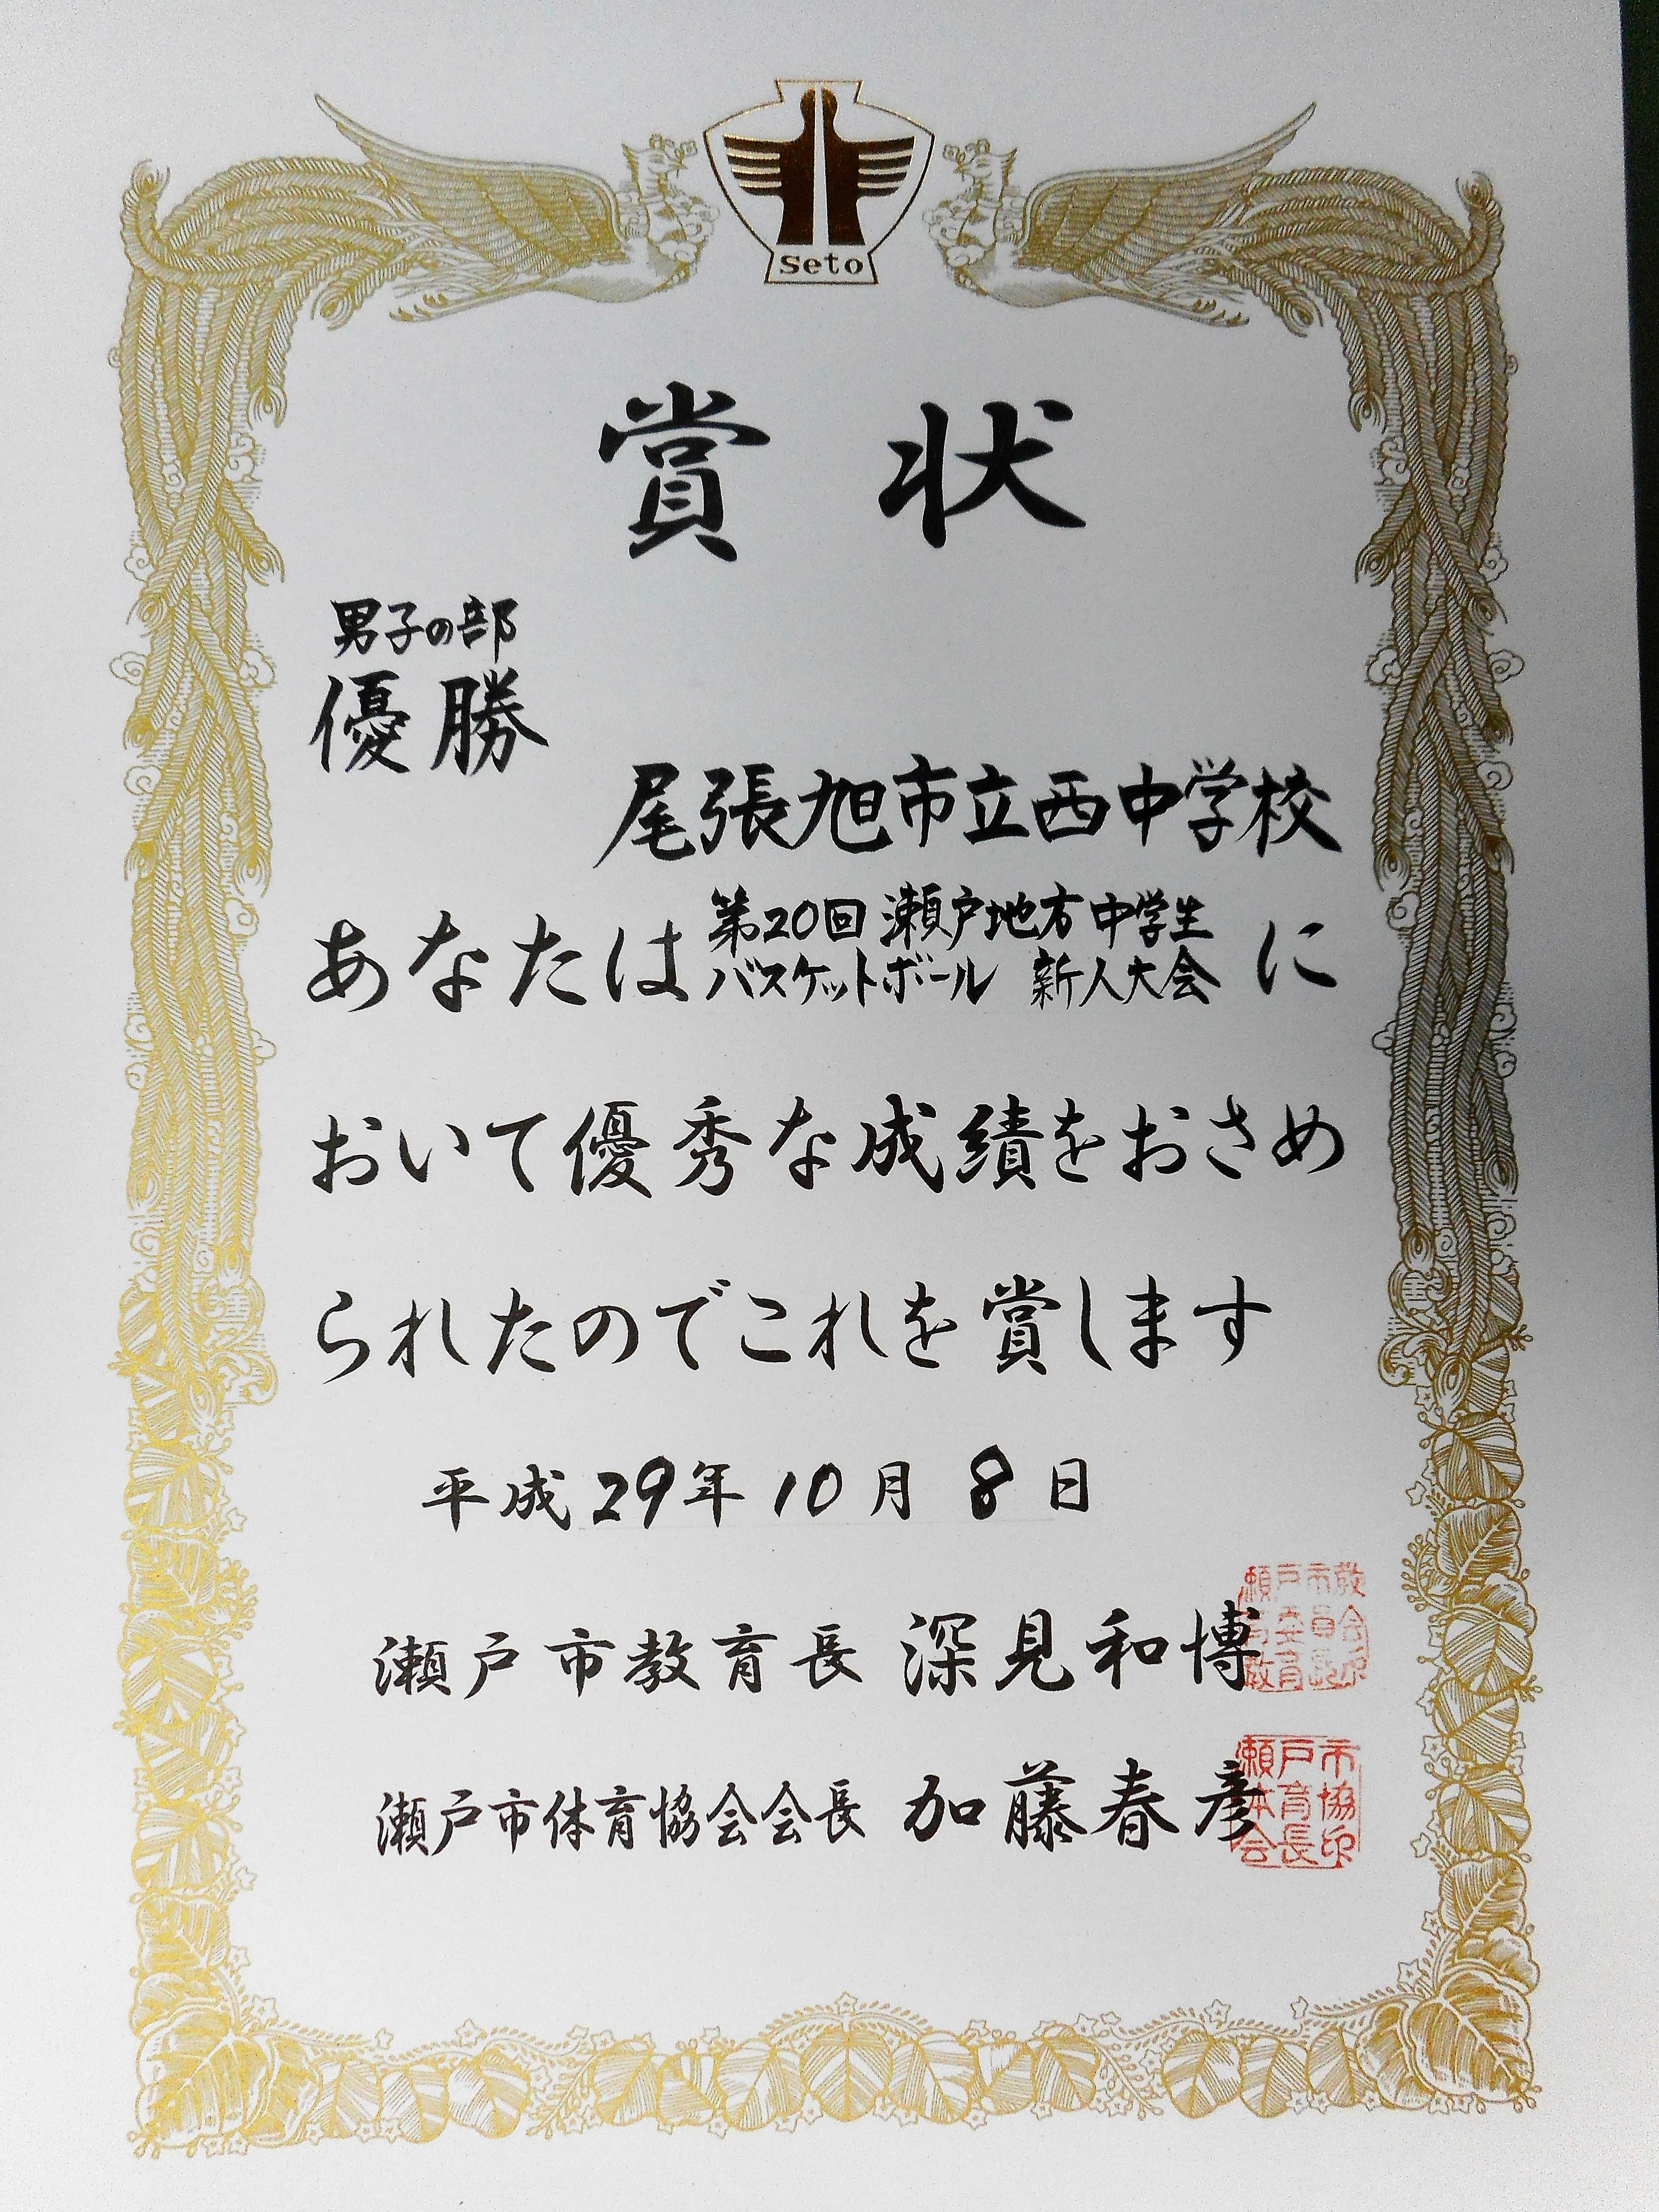 Seto
賞状
男子の部
優勝
尾張旭市立西中学校
あなたは第20回 瀬戸地方 中学生
バスケットボール 新人大会 に
おいて優秀な成績をおさめ
られたのでこれを賞します
平成29年10月8日
瀬戸市教育長 深見和博
瀬戸市体育協会会長 加藤春彦
瀬戸市
体育協
会長印